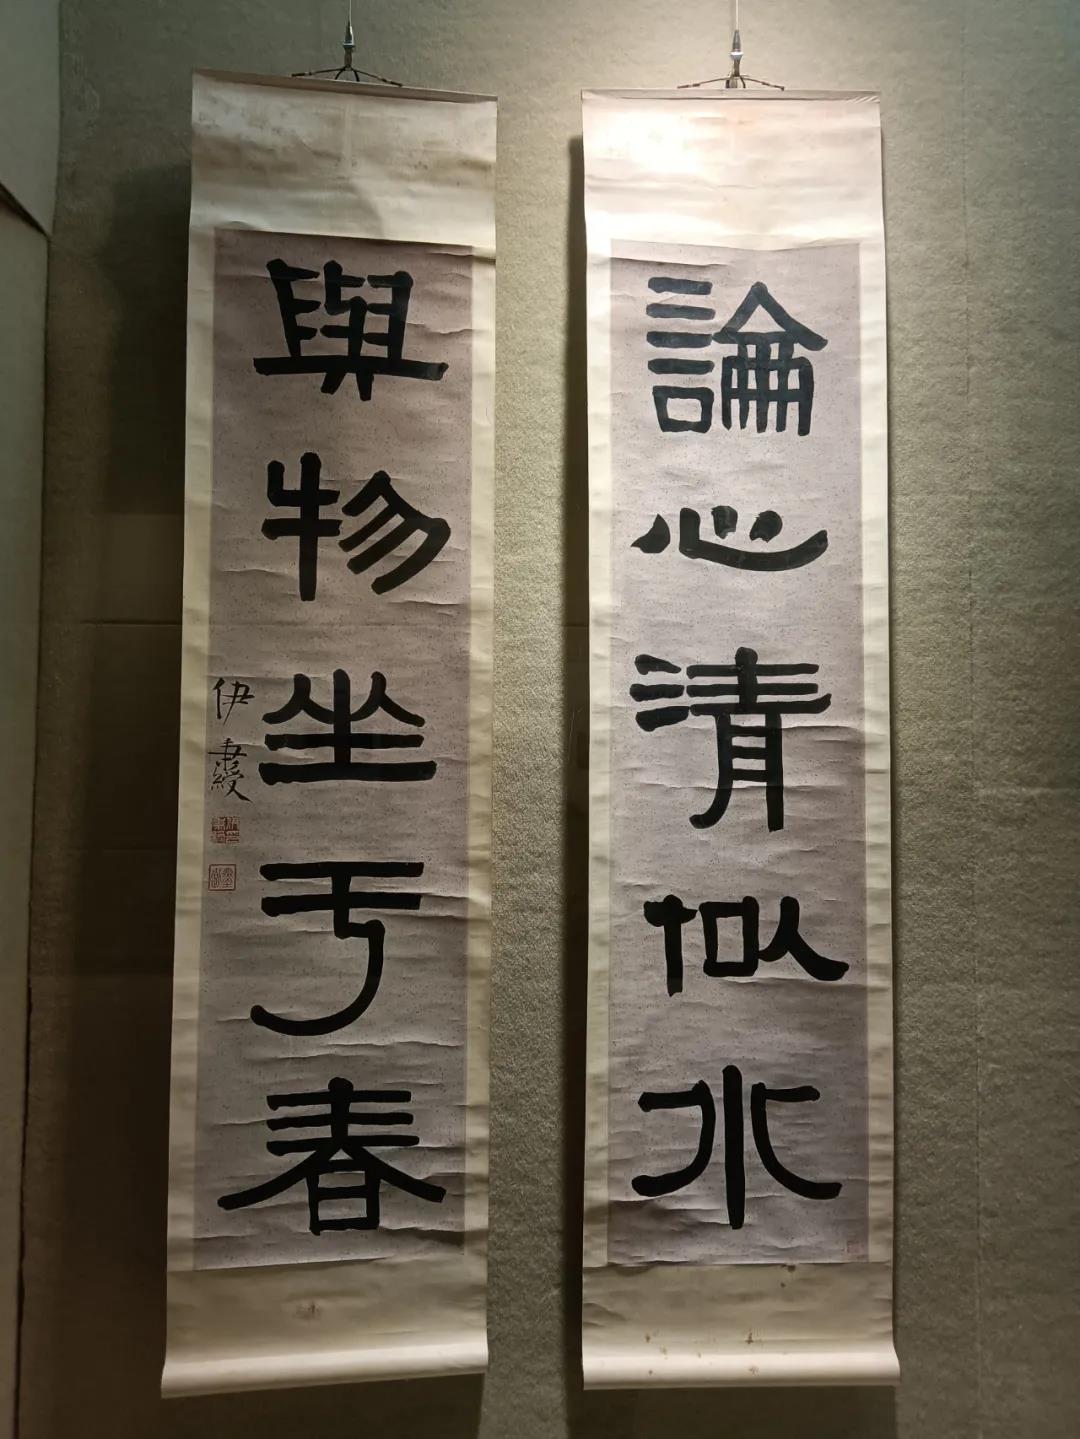 論心清似水
與物坐于春
伊秉綬